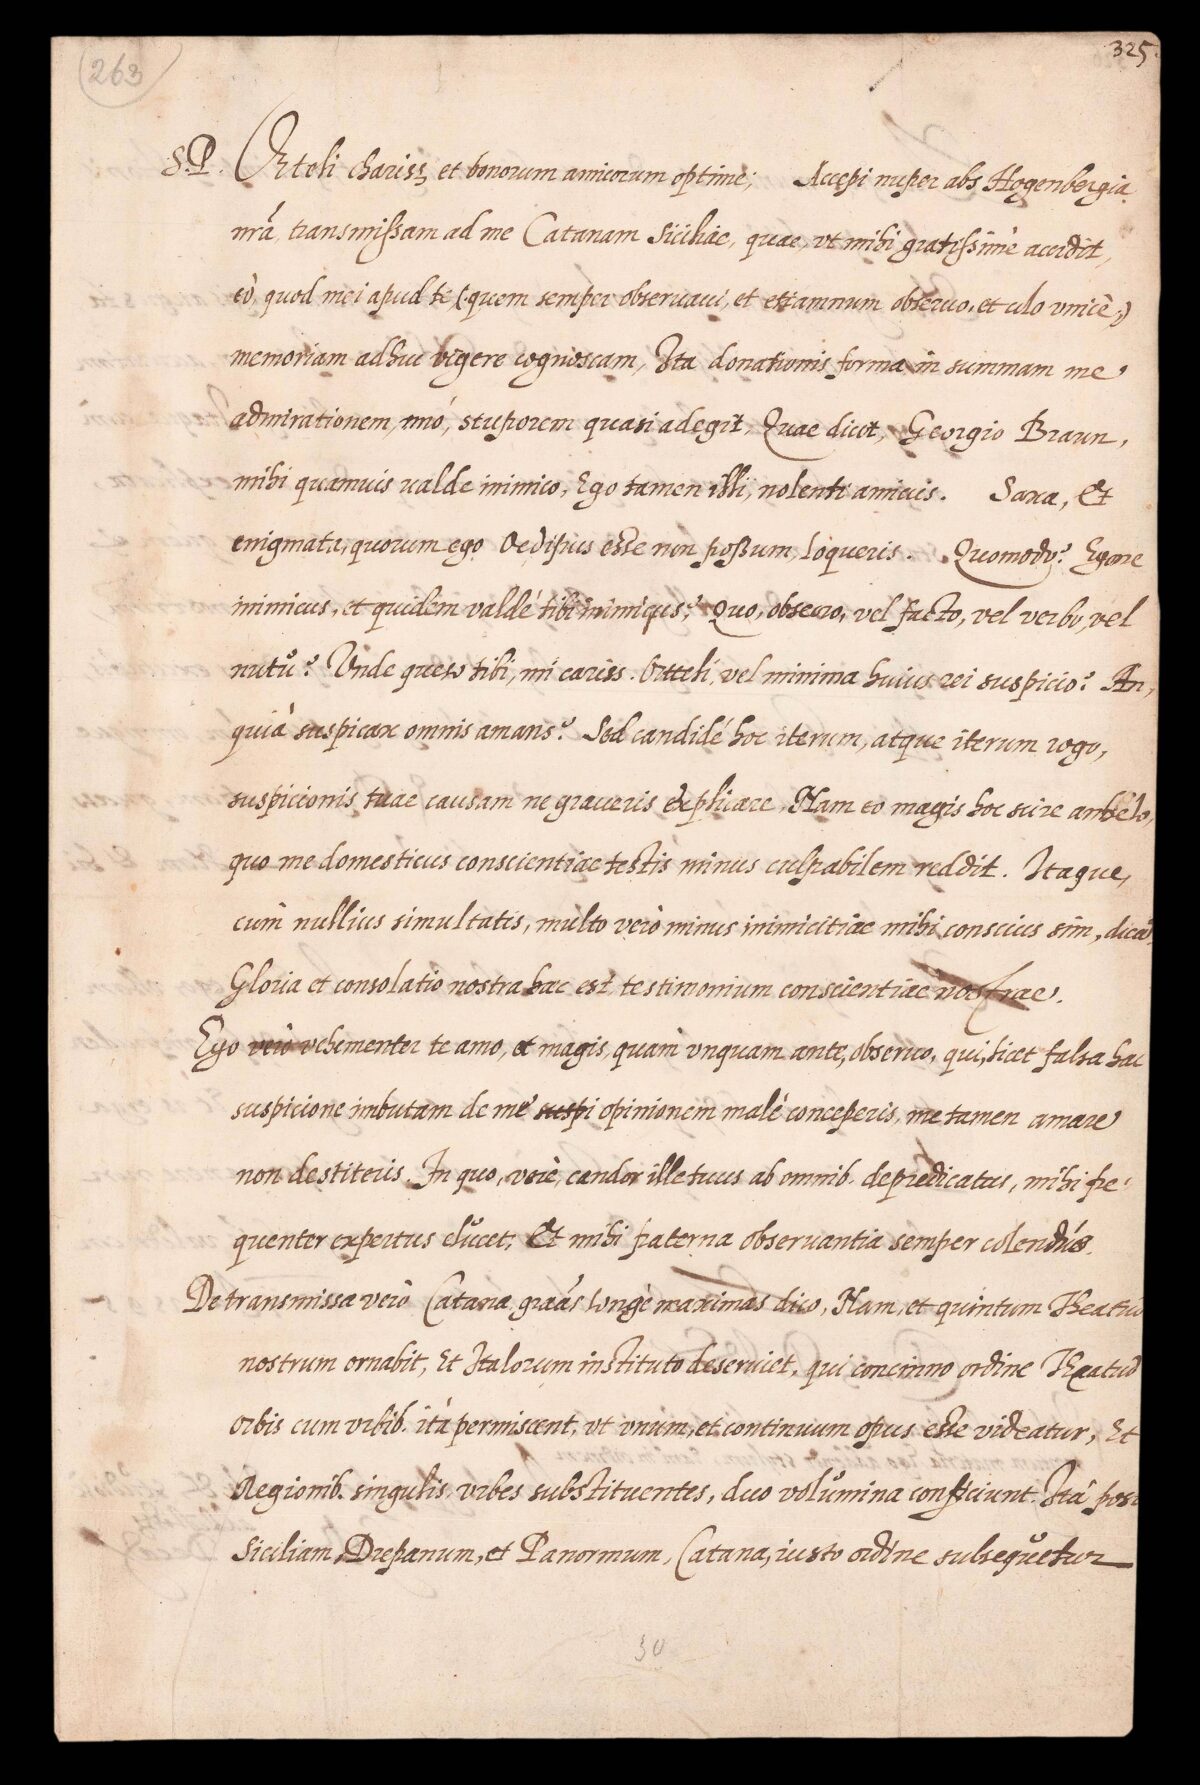 263
325.
S.P. Orteli chariss, et bonorum amicorum optime; Accepi nuper abs Hogenbergia
nrā, transmissam ad me Catanam Siciliae, quae, vt mihi gratissimè accidit,
eò, quod mei apud te (quem semper obseruaui, et etiamnum obseruo, et colo vnicè,)
memoriam adhuc vigere cognoscam, Ita donationis forma in summam me
admirationem, imó, stuporem quasi adegit, Quae dicit, Georgio Braun,
mihi quamuis valde inimico, Ego tamen illi, nolenti amicus. Saxa, Et
enigmata, quorum ego Oedipus esse non possum, loqueris. Quomodo? Egone
inimicus, et quidem valdé tibi inimicus? Quo, obsecro, vel facto, vel verbo, vel
nutu? Vnde queso tibi, mi cariss. Orteli, vel minima huius rei suspicio? An,
quià suspicax omnis amans? Sed candidé hoc iterum, atque iterum rogo,
suspicionis tuae causam ne graueris explicare, Nam eo magis hoc scire anhelo,
quo me domesticus conscientiae testis minus culpabilem reddit. Itaque,
cum nullius simultatis, multo verò minus inimicitiae mihi conscius sim, dicā
Gloria et consolatio nostra haec est, testimonium conscientiae nostrae.
Ego verò vehementer te amo, et magis, quam vnquam ante, obseruo, qui, licet falsa hac
suspicione imbutam de me suspi opinionem malè conceperis, me tamen amare
non destiteris. In quo, verè, candor ille tuus ab omnib. depredicatus, mihi fre-
quenter expertus elucet, Et mihi fraterna obseruantia semper colendus.
De transmissa verò Catana, graās longè maximas dico, Nam, et quintum Theatrū
nostrum ornabit, Et Italorum instituto deseruiet, qui concinno ordine Theatrū
orbis cum vrbib. ità permiscent, vt vnum, et continuum opus esse videatur, Et
Regionib. singulis vrbes substituentes, duo volumina conficiunt. Ità post
Siciliam, Drepanum, et Panormum, Catana, iusto ordine subsequetur
30